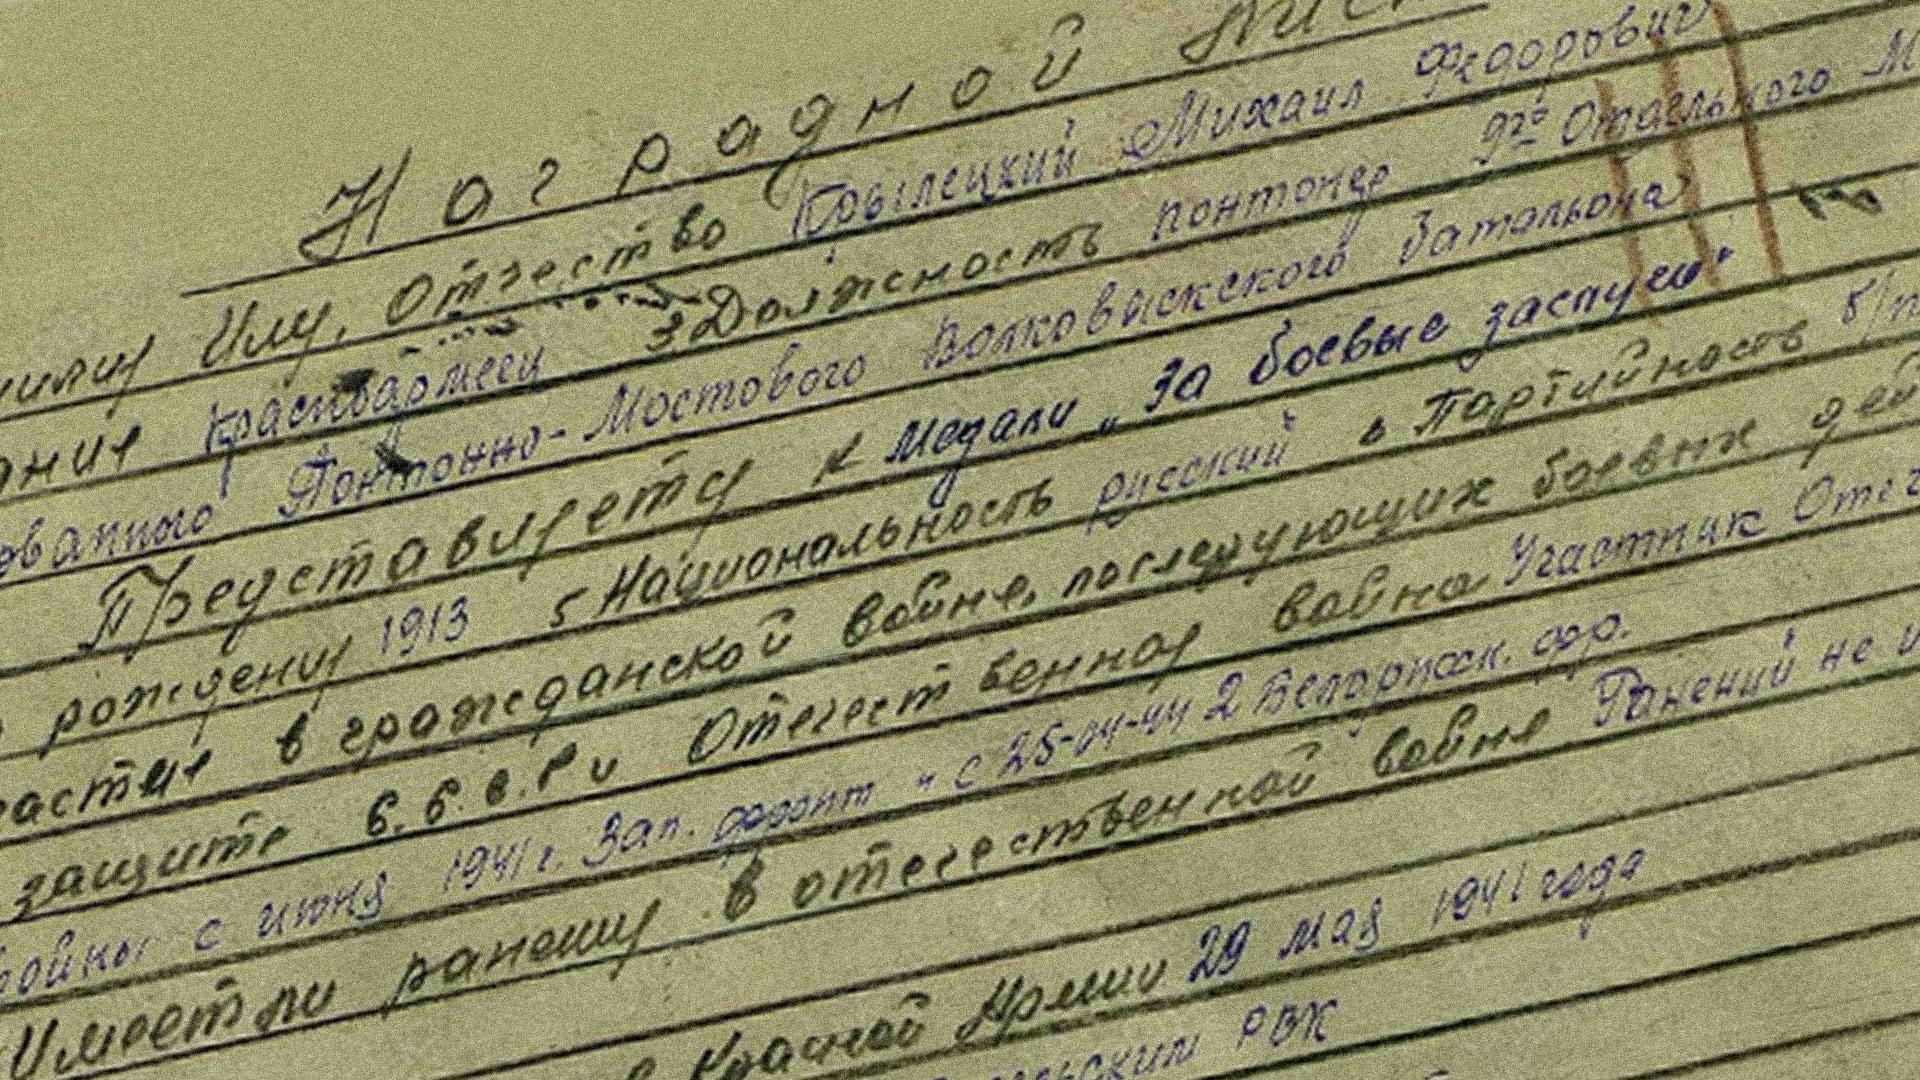 Наградной Лис
милия Имя, Отчество Крылецкий Михаил Федорович
ание красноармеец 3. Должность понтонер 9го Отдельного М
ованного Понтонно-Мостового Волковыскского батальона
Представляется к медали „За боевые заслуги"
рождения 1913 5 Национальность русский 6 Партийность б/п
частие в гражданской войне, последующих боевых дей
защите с.с.с.р и Отечественная война Участник Отеч
войны с июня 1941 г. Зап. фронт и с 25-04-44 2 Белорусск. фр.
Имеет ли ранения в отечественной войне Ранений не и
в Красной Армии 29 мая 1941 года
РВК